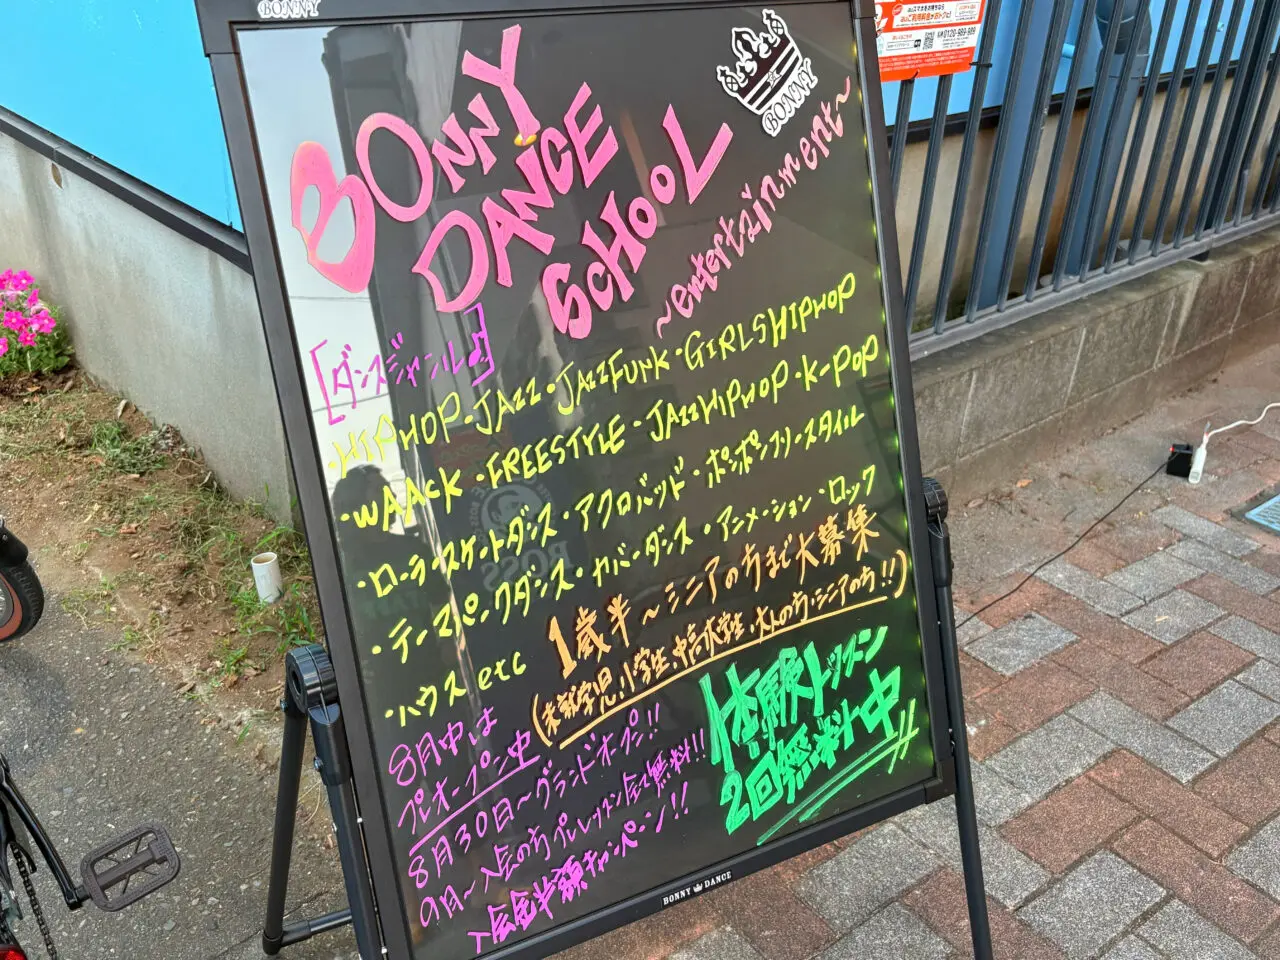 BONNY
BONNY
DANCE
SCHOOL
BONNY
~entertainment~
[ダンスジャンル♪]
・HIPHOP・JAZZ・JAZZFUNK・GIRLSHIPHOP
・WAACK・FREESTYLE・JAZZHIPHOP・K-POP
・ローラースケートダンス・アクロバッド・ポンポンフリースタイル
・テーマパークダンス・カバーダンス・アニメーション・ロック
・ハウス etc
1歳半～シニアの方まで大募集
(未就学児、小学生、中高大学生、大人の方・シニアの方!!)
8月中は
プレオープン中
8月30日～グランドオープン!!
9日～入会の方プレレッスン全て無料!!
入会金半額キャンペーン!!
体験レッスン
2回無料中!!
BONNY DANCE
0120-989-989